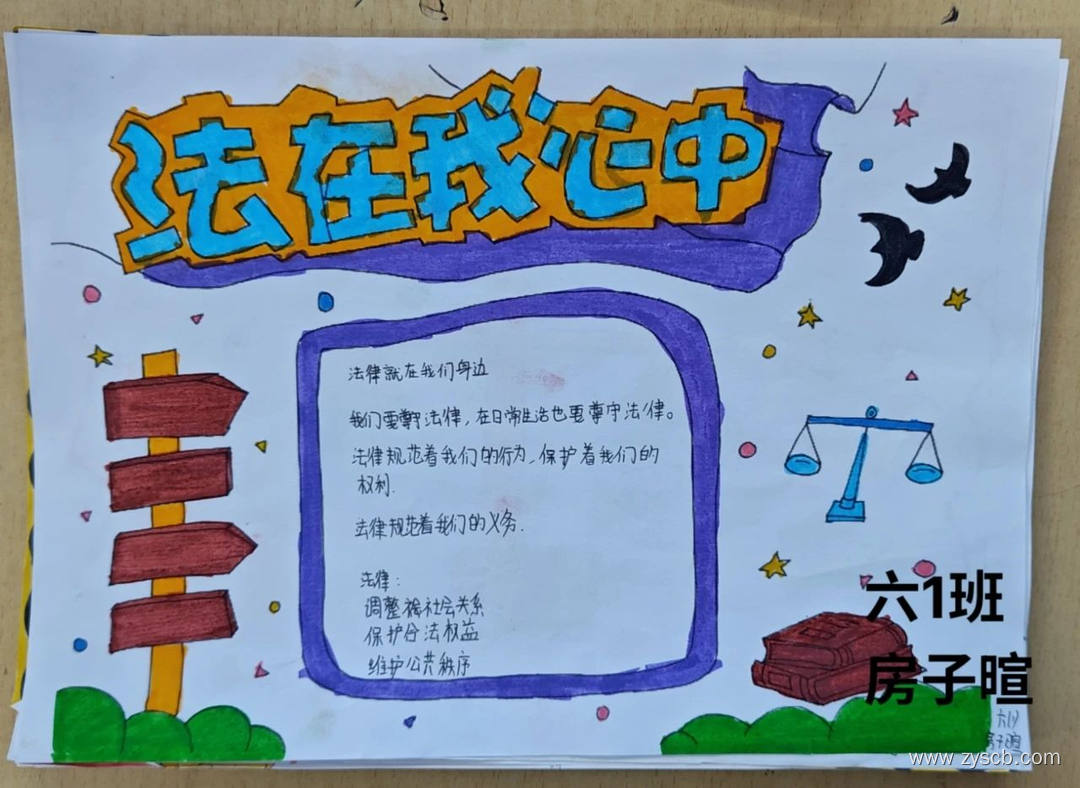 法在我心中
法律就在我们身边
我们要遵守法律，在日常生活也要遵守法律。
法律规范着我们的行为，保护着我们的
权利.
法律规范着我们的义务.
法律：
调整 社会关系
保护合法权益
维护公共秩序
六1班
房子暄
六(1)
房子暄
www.zyscb.com